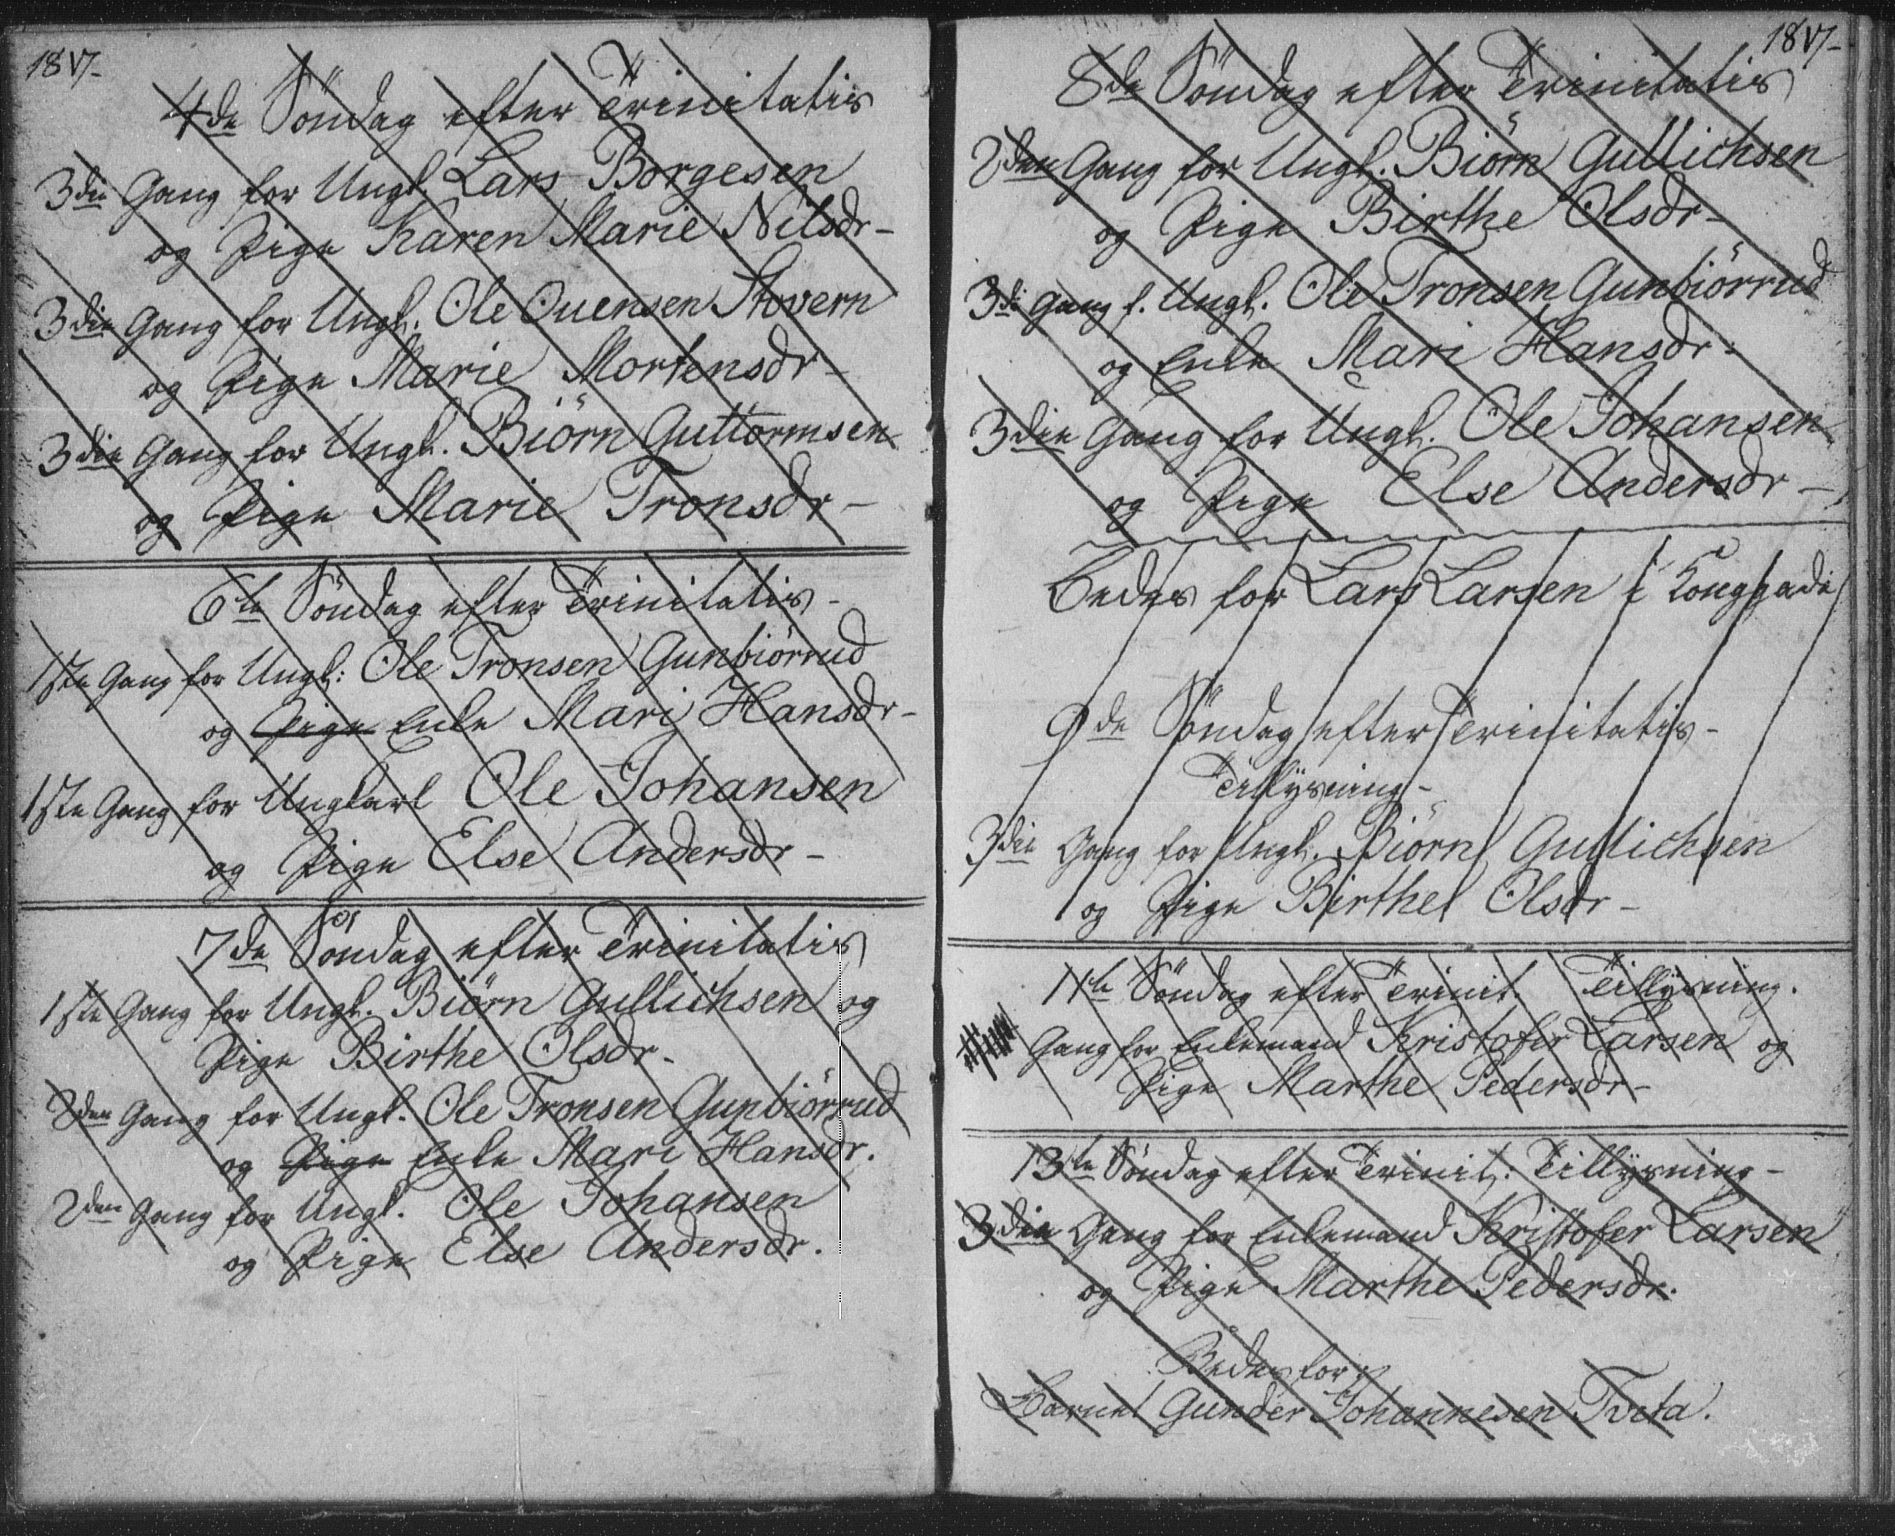 18
4de Søndag efter Trinitatis
3die Gang for Ungk. Lars Borgesen
og Pige Karen Marie Nilsdr-
3die Gang for Ungk. Ole Ouensen Stovern
og Pige Marie Mortensdr-
3die Gang for Ungk. Biörn Guttormsen
og Pige Marie Tronsdr-
6te Søndag efter Trinitatis-
1ste Gang for Ungk: Ole Tronsen Gunbiörrud
og Pige Enke Mari Hansdr-
1ste Gang for Ungkarl Ole Johansen
og Pige Else Andersdr-
7de Søndag efter Trinitatis
1ste Gang for Ungk. Biörn Gullichsen og
Pige Birthe Olsdr-
2den Gang for Ungk. Ole Tronsen Gunbiörrud
og Pige Enke Mari Hansdr.
2den Gang for Ungk. Ole Johansen
og Pige Else Andersdr.
18
8de Søndag efter Trinitatis
2den Gang for Ungk. Biörn Gullichsen
og Pige Birthe Olsdr-
3di Gang f. Ungk. Ole Tronsen Gunbiörrud
og Enke Mari Hansdr-
3die Gang for Ungk. Ole Johansen
og Pige Else Andersdr-
Bedes for Lars Larsen i
9de Søndag efter Trinitatis-
Tillysning-
3die Gang for Ungk. Biörn Gullichsen
og Pige Birthe Olsdr-
11te Søndag efter Trinit. Tillysning.
Gang for Enkemand Kristofer Larsen og
Pige Marthe Pedersdr-
13te Søndag efter Trinit: Tillysning-
3die Gang for Enkemand Kristofer Larsen
og Pige Marthe Pedersdr.
Bedes for
Barnet Gunder Johannesen Tveta.